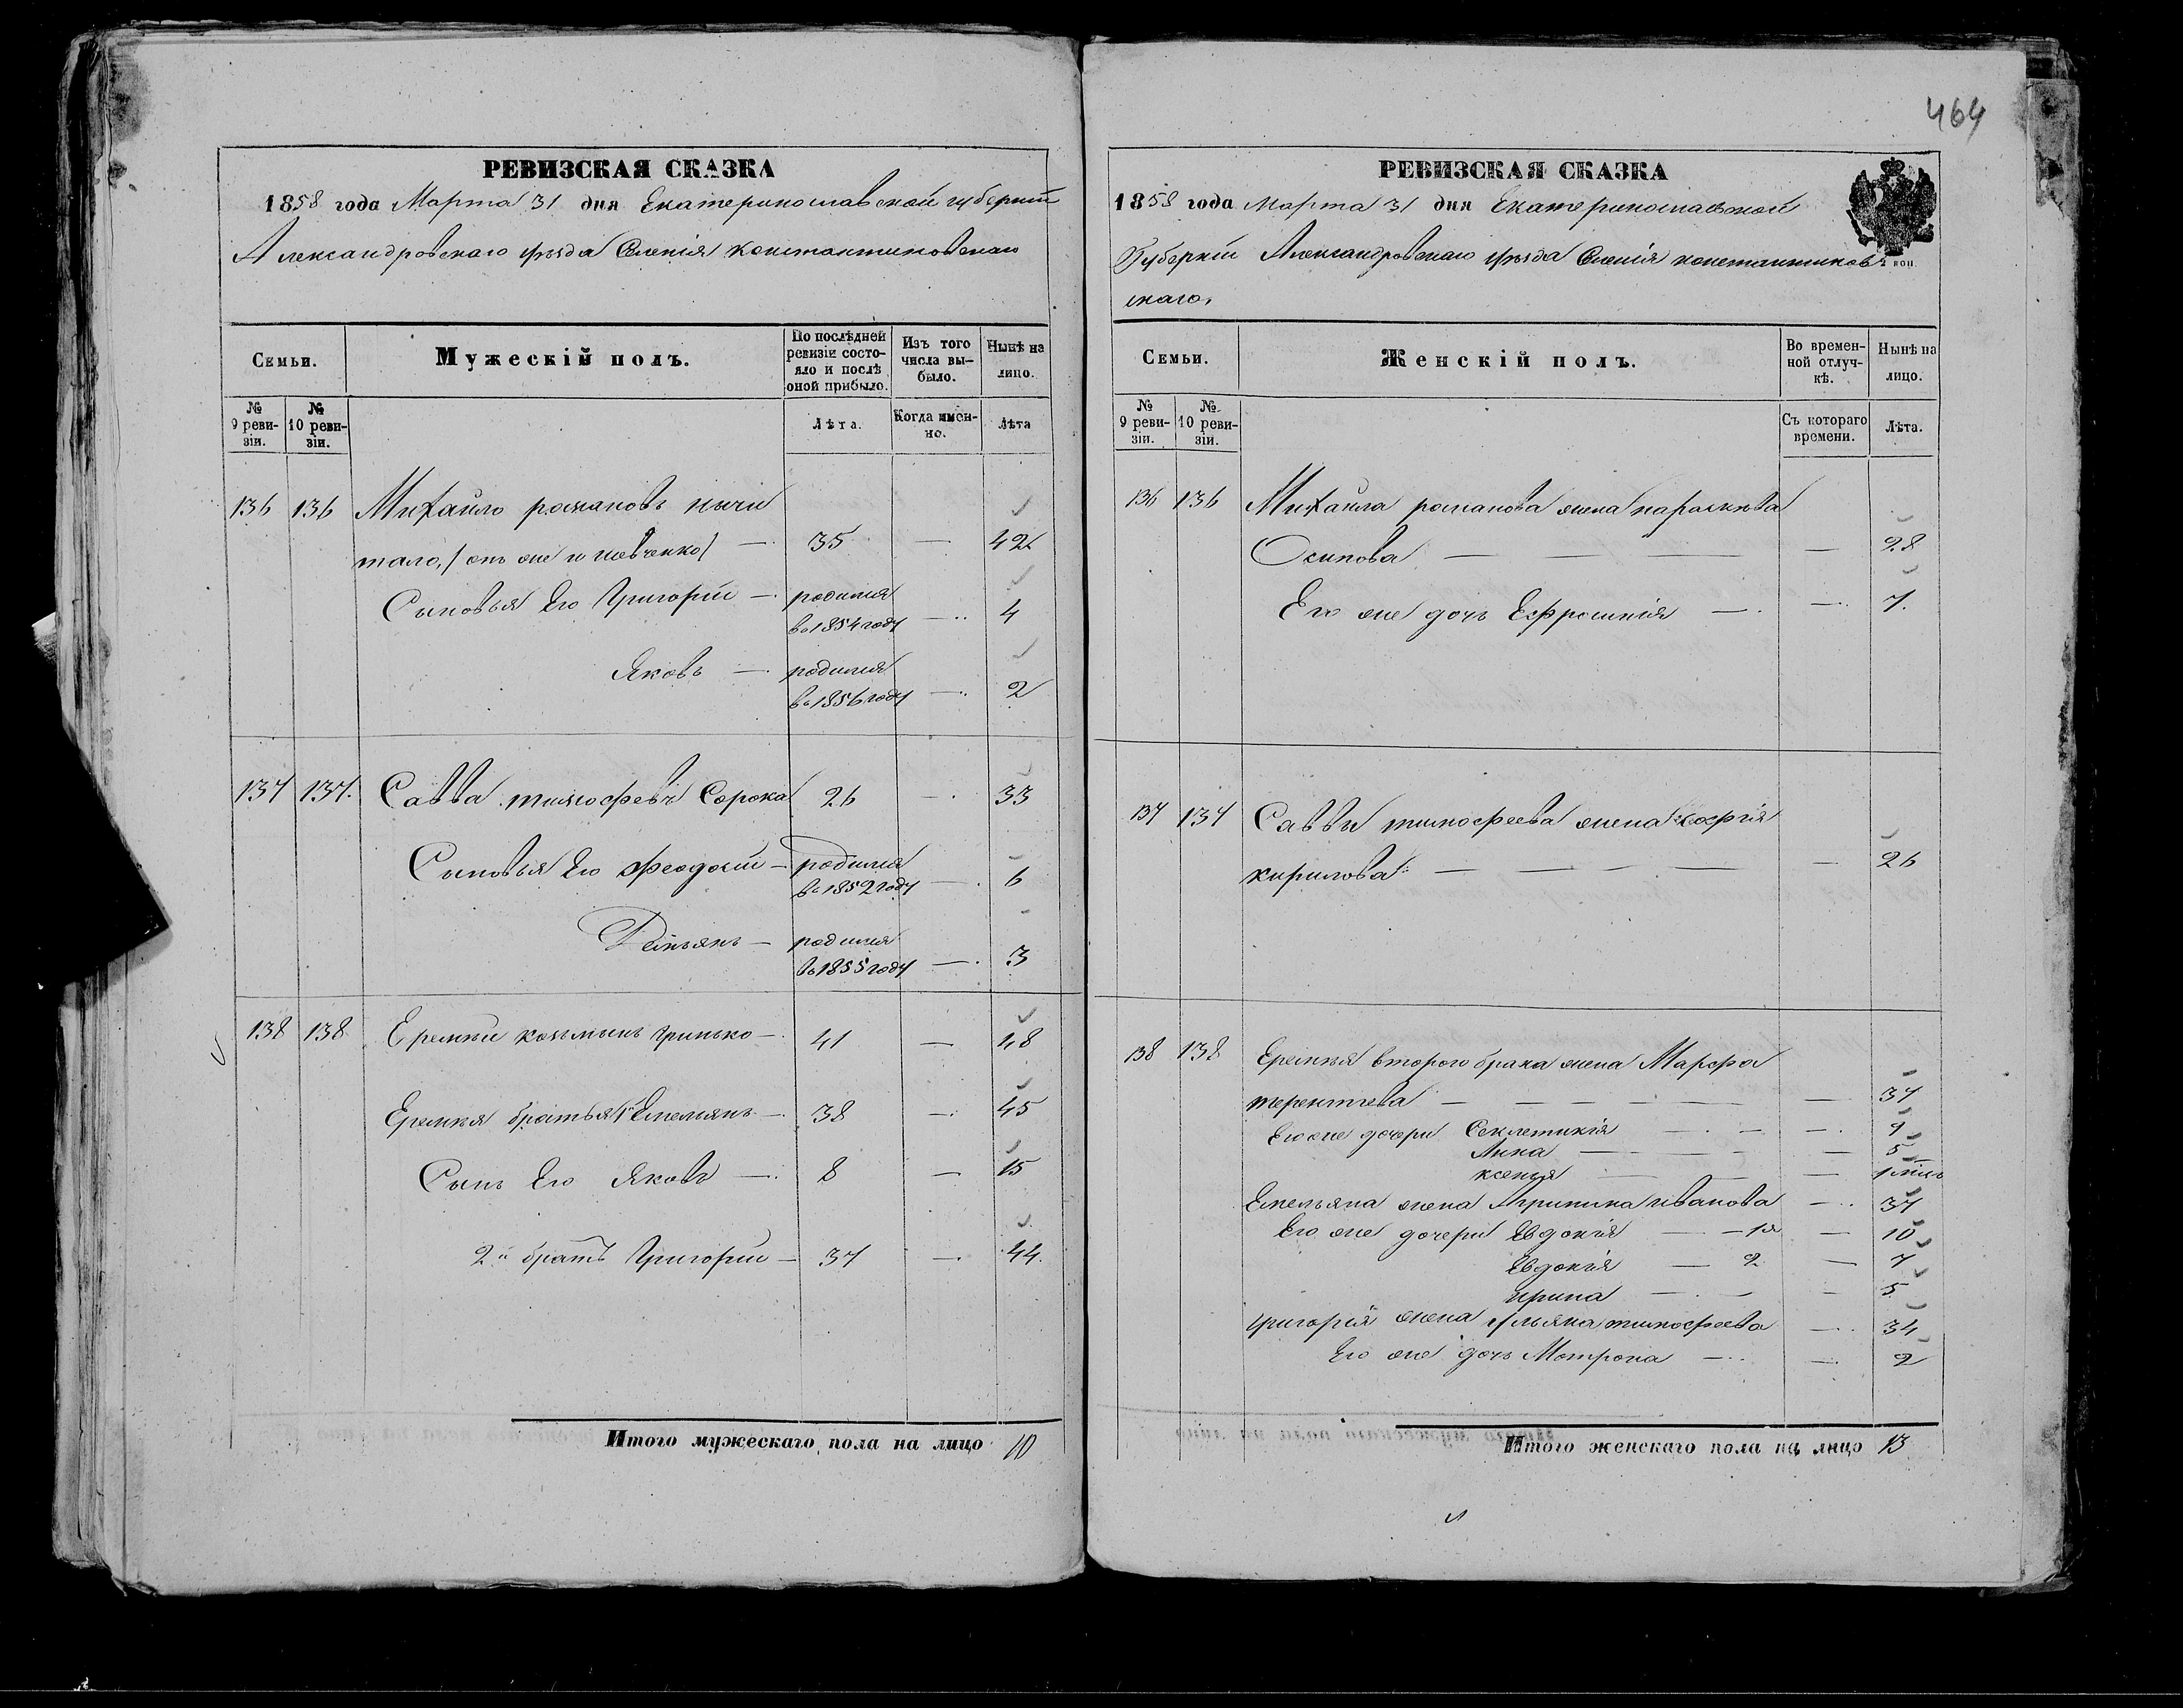 464
РЕВИЗСКАЯ СКАЗКА
1858 года Марта 31 дня Екатеринославской губерніи
Александровскаго уѣзда Селенія Константиновскаго
Семьи.
Мужескій полъ.
По послѣдней ревизіи состояло и послѣ оной прибыло.
Изъ того числа выбыло.
Нынѣ на лицо.
№ 9 ревизіи.
№ 10 ревизіи.
Лѣта.
Когда именно.
Лѣта
136 136 Михайло романовъ нычи
тало, (онъ же и шевченко) — 35 — 42
Сыновья Его Григорій — родился
въ 1854 году — 4
Яковъ — родился
въ 1856 году — 2
137 137. Савва тимофеевъ Сорока 26 — 33
Сыновья Его Феодосій — родился
въ 1852 году — 6
Демьянъ — родился
въ 1855 году — 3
138 138 Еремѣй козьминъ Гринько — 41 — 48
Еремѣя братья 1й Емельянъ — 38 — 45
Сынъ Его Яковъ — 8 — 15
2й братъ Григорій — 37 — 44.
Итого мужескаго пола на лицо 10
РЕВИЗСКАЯ СКАЗКА
1858 года марта 31 дня Екатеринославской
Губерніи Александровскаго уѣзда Селенія константинов
скаго.
коп.
Семьи.
Женскій полъ.
Во временной отлучкѣ.
Нынѣ на лицо.
№ 9 ревизіи.
№ 10 ревизіи.
Съ котораго времени.
Лѣта.
136 136 Михаила романова жена параскева
Осипова — — — 28
Его же дочь Ефросинія — — 7.
137 137 Саввы тимофеева жена софія
кирилова — — — — 26
138 138 Еремѣя втораго брака жена Марфа
терентьева — — — — 37
Его же дочери Секлетикія — — — 9
Анна — — — 5
ксенья — —
Емельяна жена Агрипина иванова — 37
Его же дочери Евдокія — 1я — 10
Евдокія — 2 — 7
ирина — — — 5
григорія жена ульяна тимофеева — 34
Его же дочь Мотрона — — 2
Итого женскаго пола на лицо 13